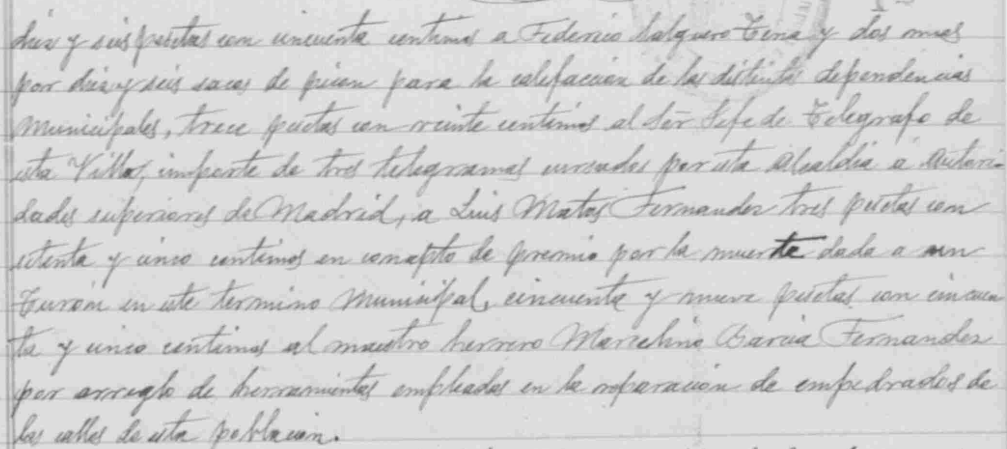 diez y seis pesetas con cincuenta centimos a Federico Salguero Tena y dos mas
por diez y seis sacas de picon para la calefaccion de las distintas dependencias
Municipales, trece pesetas con veinte centimos al Señ Jefe de Telegrafo de
esta Villa, importe de tres telegramas cursados por esta Alcaldia a Autori-
dades superiores de Madrid, a Luis Matas Fernandez tres pesetas con
setenta y cinco centimos en concepto de premio por la muerte dada a un
Turón en este termino Municipal, cincuenta y nueve pesetas con cincuen
ta y cinco centimos al maestro herrero Marcelino Garcia Fernandez
por arreglo de herramientas empleadas en la reparacion de empedrados de
las calles de esta poblacion.